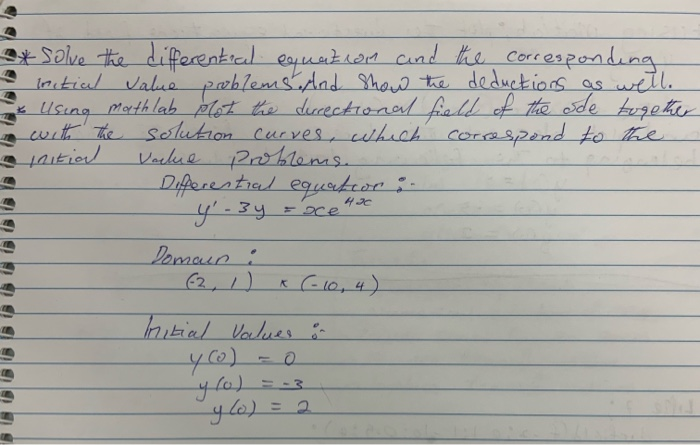 * Solve the differential equation and the corresponding
initial value problems. And show the deductions as well.
* Using mathlab plot the directional field of the ode together
with the solution curves, which correspond to the
initial value problems.
Differential equation :-
y' - 3y = xe^{4x}
Domain :
(-2, 1) x (-10, 4)
Initial Values :-
y(0) = 0
y(0) = -3
y(0) = 2